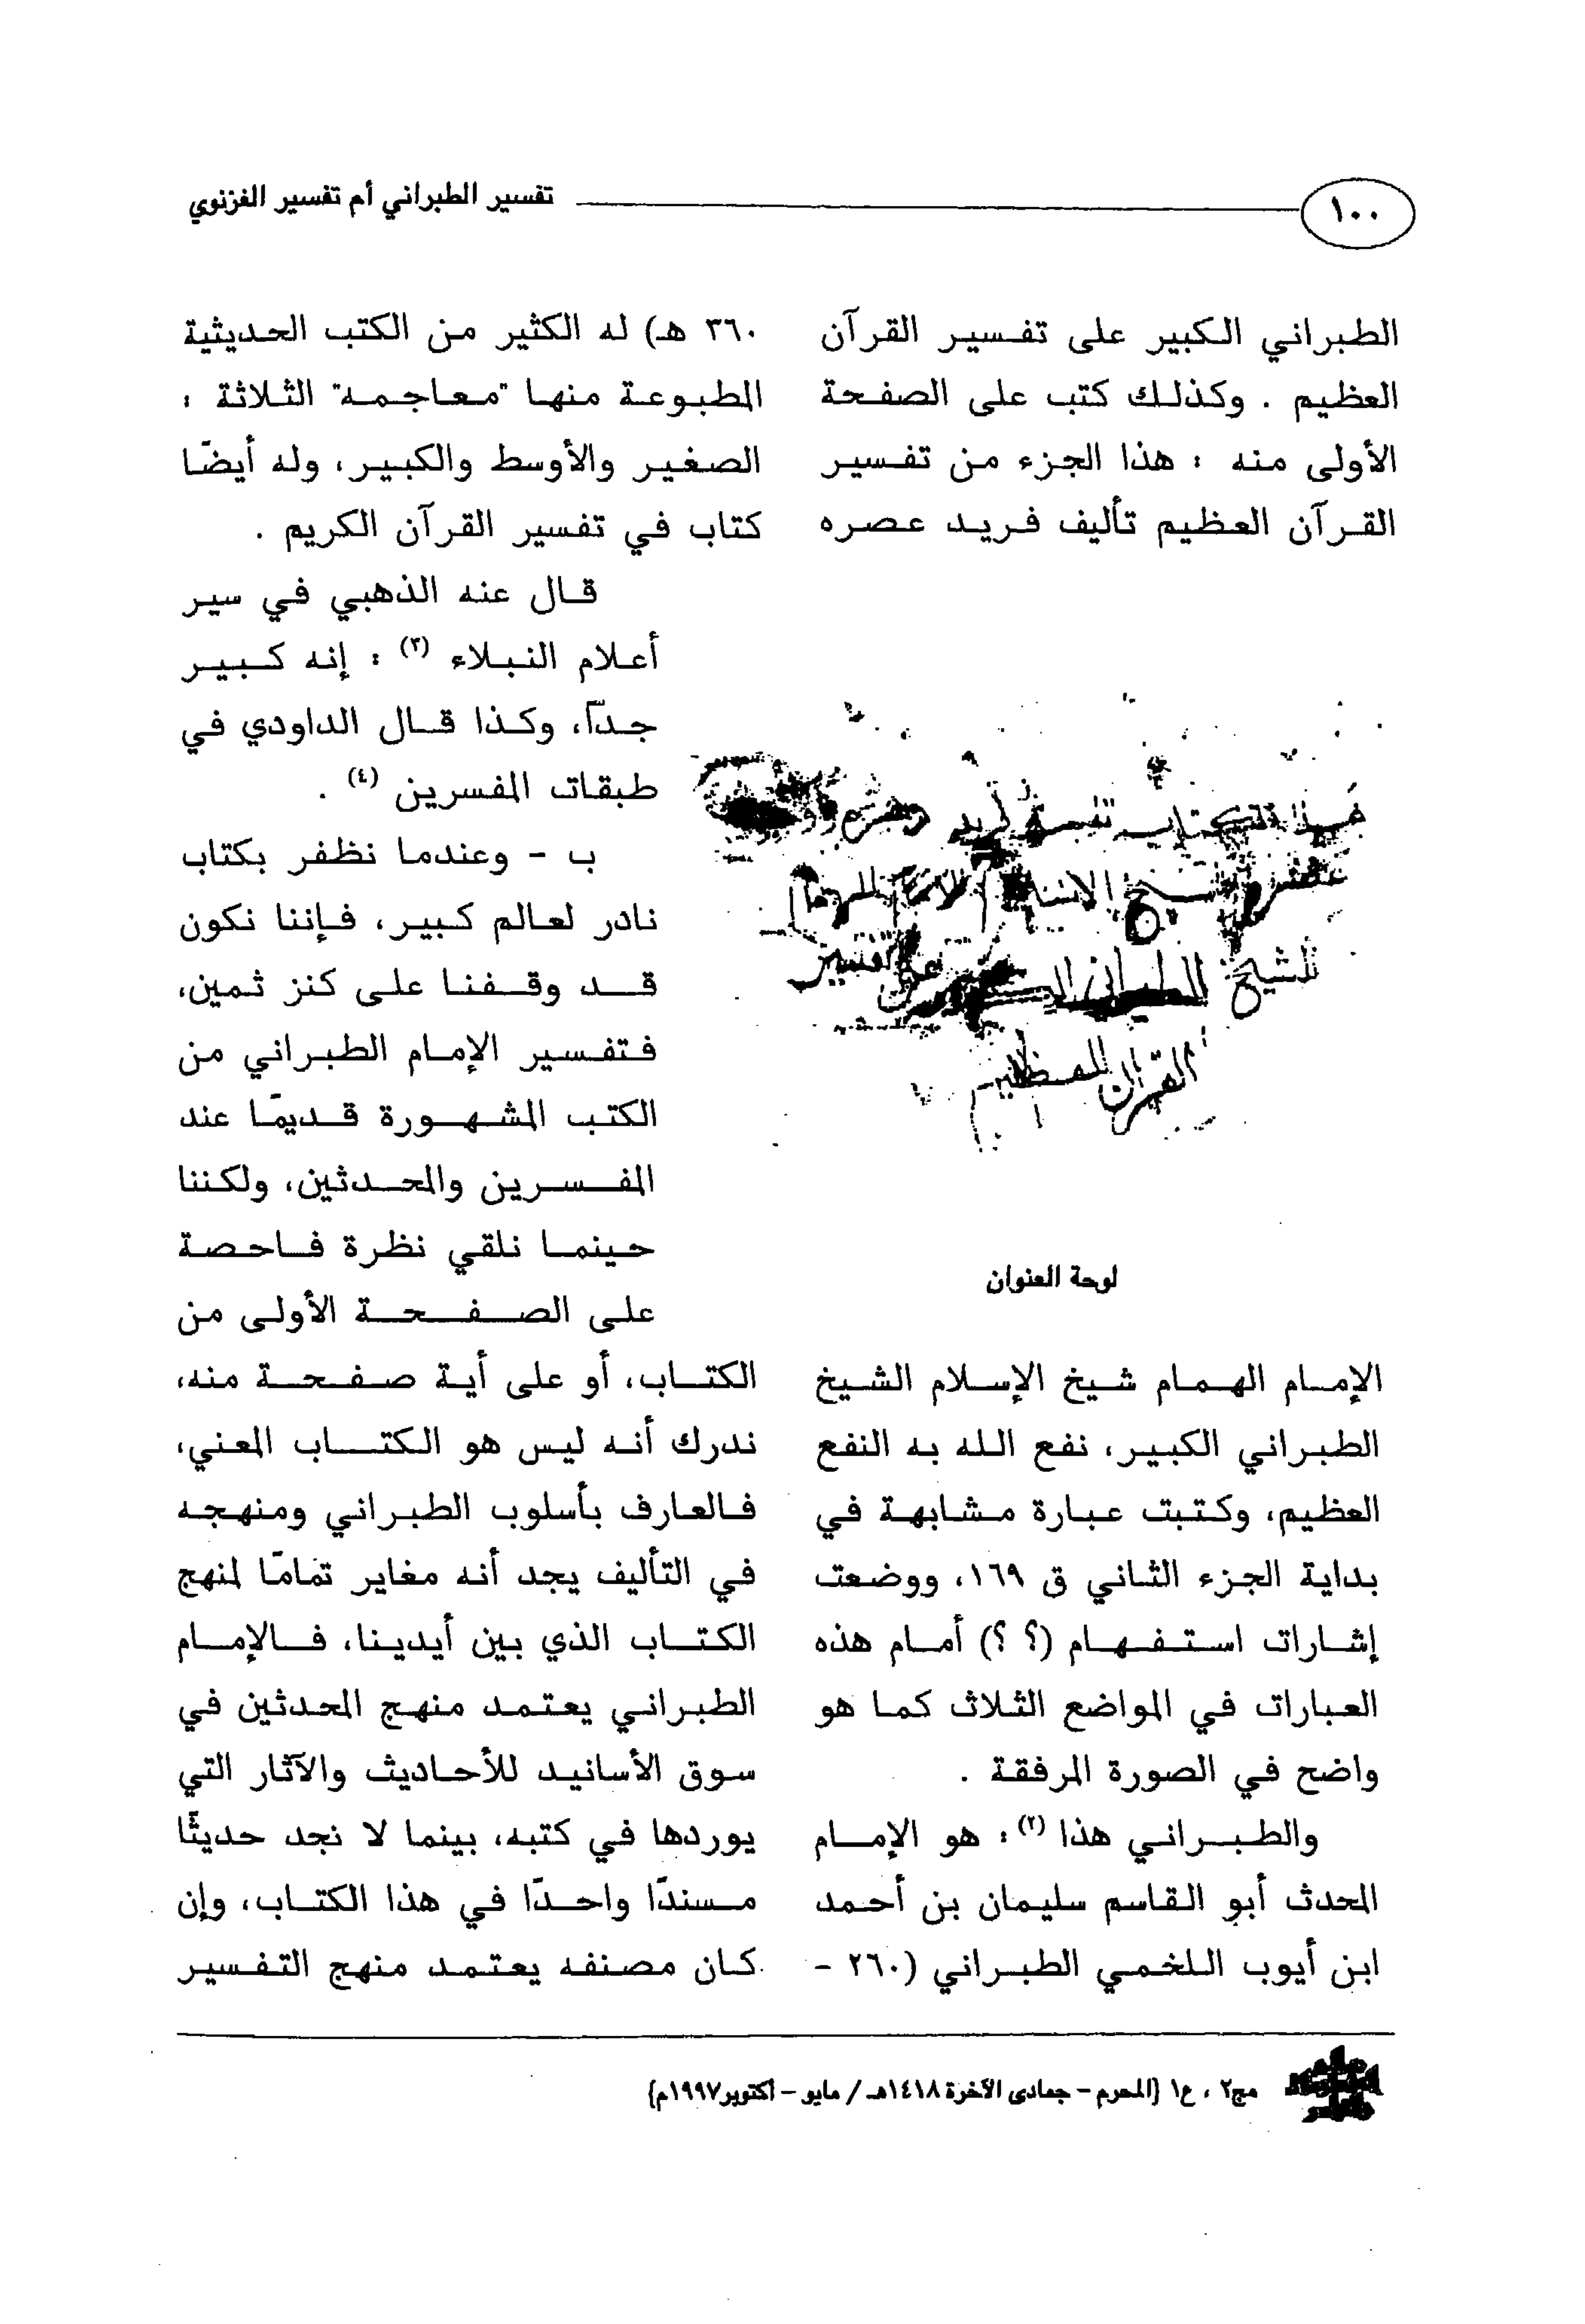 ١٠٠
تفسير الطبراني أم تفسير الغزنوي
الطبراني الكبير على تفسير القرآن
العظيم . وكذلك كتب على الصفحة
الأولى منه : هذا الجزء من تفسير
القرآن العظيم تأليف فريد عصره
هذا الكتاب تفسير فريد
الطبراني
للشيخ الطبراني الكبير على تفسير
القرآن العظيم
لوحة العنوان
الإمام الهمام شيخ الإسلام الشيخ
الطبراني الكبير، نفع الله به النفع
العظيم، وكتبت عبارة مشابهة في
بداية الجزء الثاني ق ١٦٩، ووضعت
إشارات استفهام (؟ ؟) أمام هذه
العبارات في المواضع الثلاث كما هو
واضح في الصورة المرفقة .
والطبراني هذا (٢) : هو الإمام
المحدث أبو القاسم سليمان بن أحمد
ابن أيوب اللخمي الطبراني (٢٦٠ -
٣٦٠ هـ) له الكثير من الكتب الحديثية
المطبوعة منها "معاجمه" الثلاثة :
الصغير والأوسط والكبير، وله أيضًا
كتاب في تفسير القرآن الكريم .
قال عنه الذهبي في سير
أعلام النبلاء (٣) : إنه كبير
جدّاً، وكذا قال الداودي في
طبقات المفسرين (٤) .
ب - وعندما نظفر بكتاب
نادر لعالم كبير، فإننا نكون
قد وقفنا على كنز ثمين،
فتفسير الإمام الطبراني من
الكتب المشهورة قديمًا عند
المفسرين والمحدثين، ولكننا
حينما نلقي نظرة فاحصة
على الصفحة الأولى من
الكتاب، أو على أية صفحة منه،
ندرك أنه ليس هو الكتاب المعني،
فالعارف بأسلوب الطبراني ومنهجه
في التأليف يجد أنه مغاير تمامًا لمنهج
الكتاب الذي بين أيدينا، فالإمام
الطبراني يعتمد منهج المحدثين في
سوق الأسانيد للأحاديث والآثار التي
يوردها في كتبه، بينما لا نجد حديثًا
مسندًا واحدًا في هذا الكتاب، وإن
كان مصنفه يعتمد منهج التفسير
مج٢ ، ع١ (المحرم - جمادى الآخرة ١٤١٨هـ / مايو - أكتوبر ١٩٩٧م)